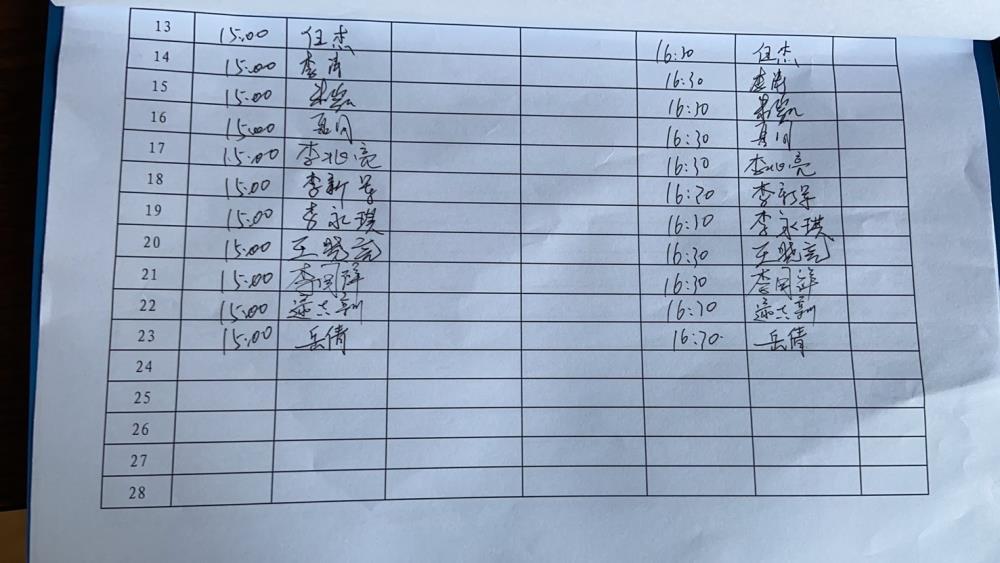 13 15:00 任杰 16:30 任杰
14 15:00 李涛 16:30 李涛
15 15:00 16:30
16 15:00 16:30
17 15:00 李兆亮 16:30 李兆亮
18 15:00 李新军 16:30 李新军
19 15:00 李永琪 16:30 李永琪
20 15:00 王晓亮 16:30 王晓亮
21 15:00 李国祥 16:30 李国祥
22 15:00 16:30
23 15:00 岳倩 16:30
岳倩
24
25
26
27
28